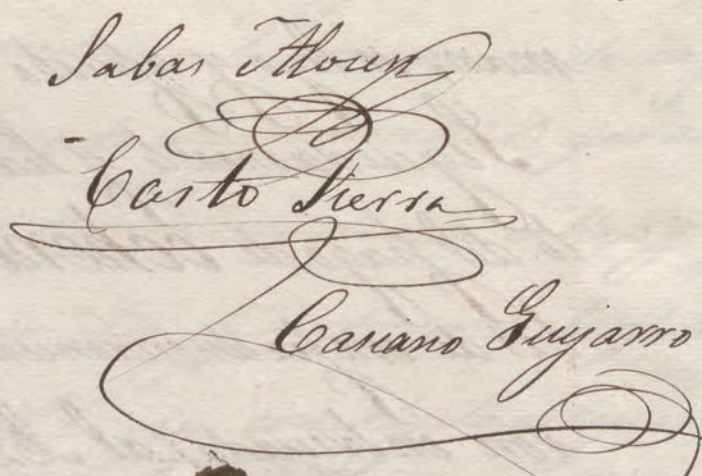 Sabas Alonso
Casto Sierra
Casiano Guijarro